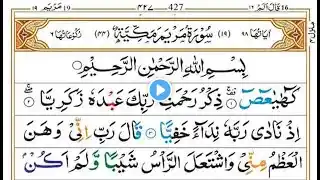 قال الم ١٦ ٤٢٧ 427 مريم ١٩
اٰیاتها ٩٨ (١٩) سُوْرَةُ مَرْيَمَ مَكِّيَّةٌ (٤٤) رکوعاتها ٦
بِسْمِ اللّٰهِ الرَّحْمٰنِ الرَّحِيْمِ
كٓهٰيٰعٓصٓ ۚ ذِكْرُ رَحْمَتِ رَبِّكَ عَبْدَهٗ زَكَرِيَّا ۚ
اِذْ نَادٰى رَبَّهٗ نِدَآءً خَفِيًّا قَالَ رَبِّ اِنِّيْ وَهَنَ
الْعَظْمُ مِنِّيْ وَاشْتَعَلَ الرَّاْسُ شَيْبًا وَّلَمْ اَكُنْۢ